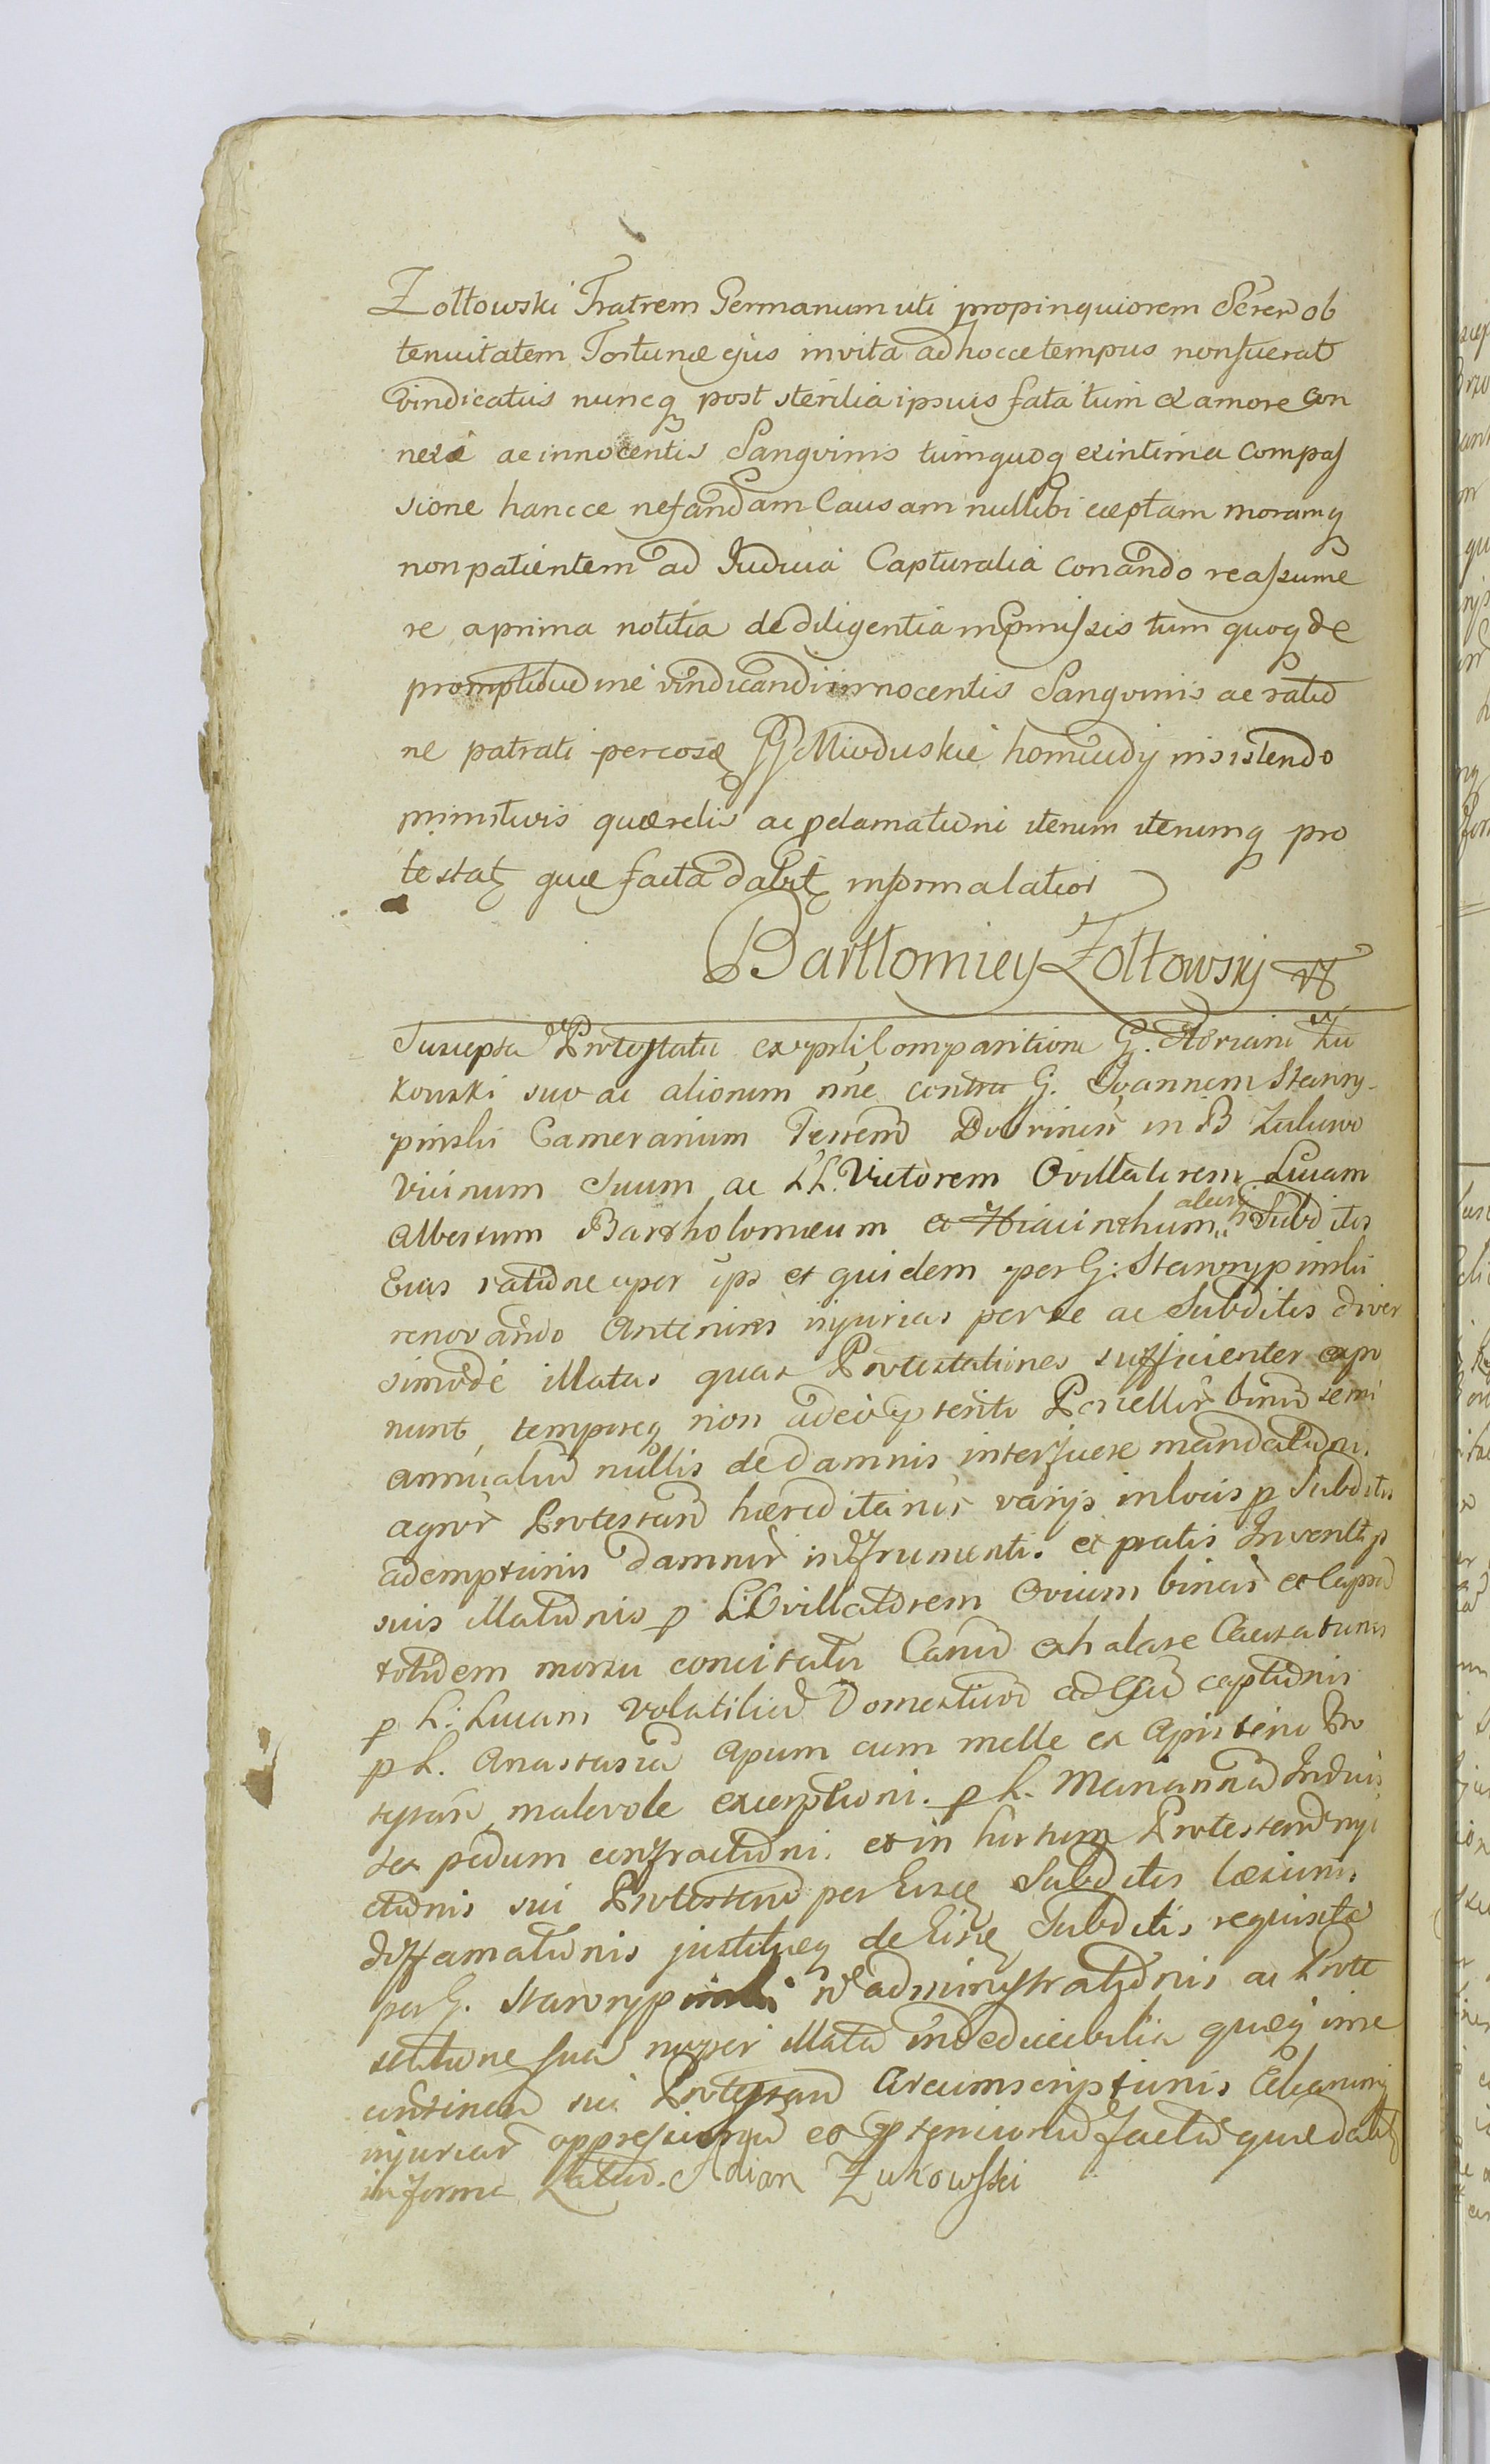 Zołtowski Fratrem Germanum uti propinquiorem ob
tenuitatem Fortunæ ejus invita ad hocce tempus non fuerat
vindicatus nuncq post sterilia ipsius fata tum ex amore con
nexi ac innocentis Sangvinis tumquoq ex intima compas
sione hancce nefandam Causam nullibi cæptam moramq
non patientem ad Judicia Capturalia conando reassume
re a prima notitia de diligentia in præmissis tum quoq de
promptitudine vindicandi innocentis Sangvinis ac ratio
ne patrati per GG Mioduskie homicidij insistendo
primitivis quærelis ac proclamationi iterum iterumq pro
testat quæ facta dabit in forma latior
Bartłomiey Zołtowskj
Suscepta Protestatio ex Comparitione G. Adriani Zu
kowski suo ac aliorum nne contra G. Joannem Starory-
pinski Camerarium Terrend Dobrinen in B Zukowo
Vicinum Suum ac LL. Victorem Ovillatorem Lucam
Albertum Bartholomæum et Hiacinthum alios Subditos
Eius ratione et quidem per G: Starorypinski
renovando Anteriores injurias per se ac Subditos diver
simode illatas quas Protestationes sufficienter expo
nunt, temporeq non adeo Porcellor binor semi
annualiu nullis de damnis interfuere mandationis
agror Protestand hæreditarior varijs in locis p Subditos
ademptionis damnor in Frumentis et pratis Inventis p
suis illationis p L. Ovillatorem Ovium binar
totidem morsu concitator Canu exhalare Causationis
p L: Lucam Volatiliu Domesticor ad captionis
p L. Anastasia Apum cum melle ex Apisterio Pro
testan malevole exceptioni. p L. Marianna
pedum confractioni. et in Protestand
ctionis sui Protestand per Eiusq Subditos læsionis
diffamationis justitiæq de Eiusq Subditis requisitæ
per G. Starorypinski non administrationis ac Prote
statione sua nuper illata quæq
sui Protestand Circumscriptionis
injuriar oppressionu et facta quæ dabit
in forma Latiori. Adrian Zukowski